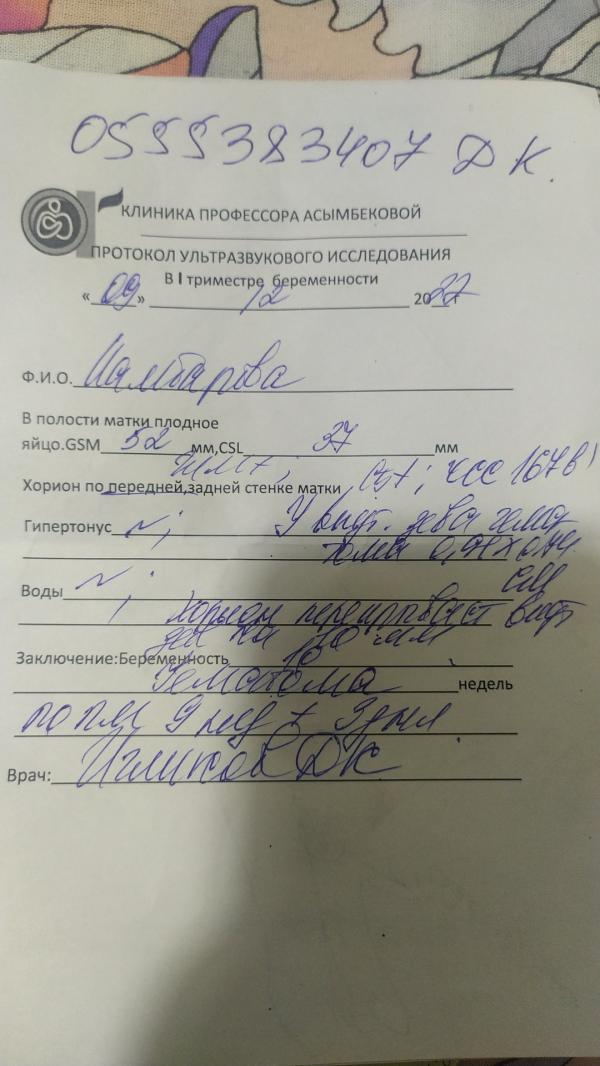 0555383407 Д К.
КЛИНИКА ПРОФЕССОРА АСЫМБЕКОВОЙ
ПРОТОКОЛ УЛЬТРАЗВУКОВОГО ИССЛЕДОВАНИЯ
В I триместре беременности
«09» 12 20
Ф.И.О.
В полости матки плодное
яйцо.GSM 52 мм,CSL 37 мм
Хорион по передней,задней стенке матки ЧСС 167
Гипертонус У внут. зева гема
тома
Воды см
Хорион перекрывает внут
зев на мм
Заключение:Беременность 10
Гематома недель
по пм 9 нед + 3 дня
Врач: ДК